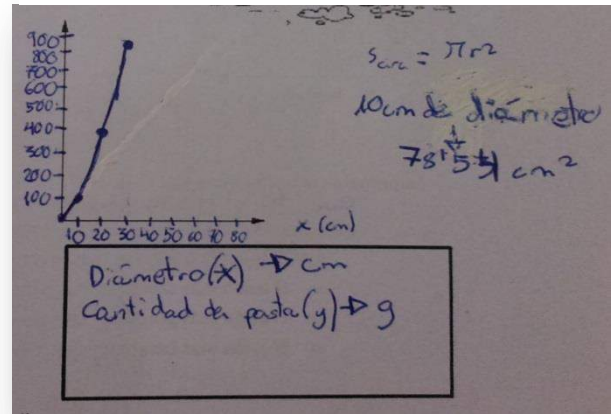 900
800
700
600
500
400
300
200
100
10 20 30 40 50 60 70 80
x (cm)
S = πr²
10cm de diámetro
cm²
Diámetro(x) → cm
Cantidad de pasta(y) → g